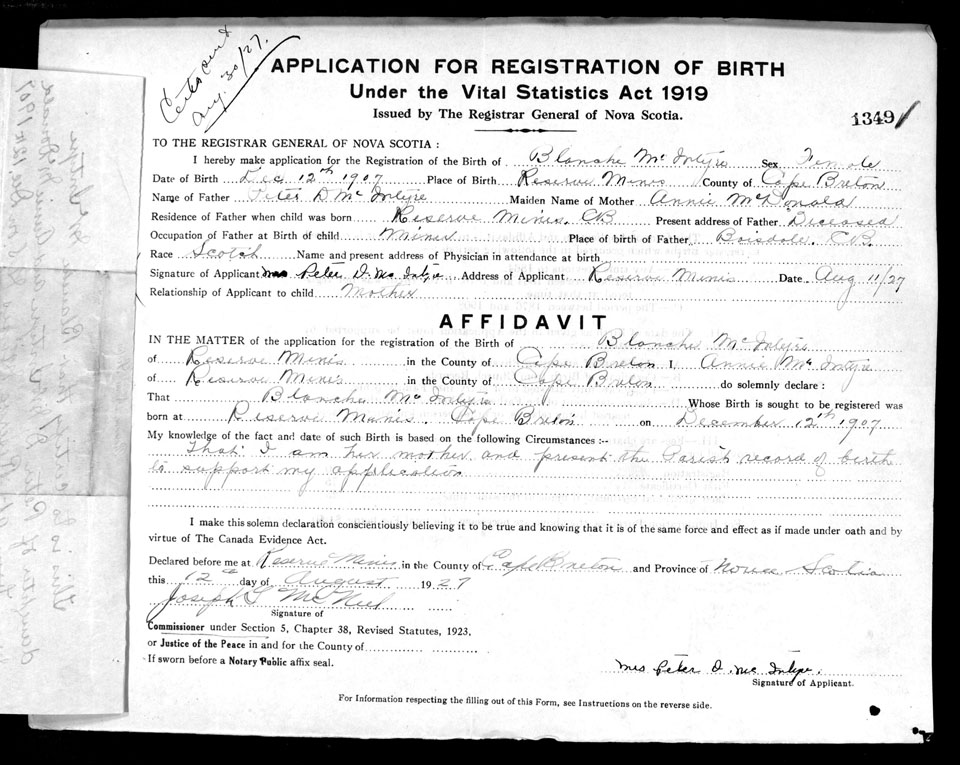 Certs sent
Aug. 30/27.
APPLICATION FOR REGISTRATION OF BIRTH
Under the Vital Statistics Act 1919
Issued by The Registrar General of Nova Scotia.
1349
TO THE REGISTRAR GENERAL OF NOVA SCOTIA :
I hereby make application for the Registration of the Birth of Blanche Mc Intyre Sex Female
Date of Birth Dec 12th 1907 Place of Birth Reserve Mines County of Cape Breton
Name of Father Peter D Mc Intyre Maiden Name of Mother Annie McDonald
Residence of Father when child was born Reserve Mines, CB Present address of Father Deceased
Occupation of Father at Birth of child Miner Place of birth of Father Boisdale, CB.
Race Scotch Name and present address of Physician in attendance at birth
Signature of Applicant Mrs Peter D. Mc Intyre Address of Applicant Reserve Mines Date Aug 11/27
Relationship of Applicant to child Mother
AFFIDAVIT
IN THE MATTER of the application for the registration of the Birth of Blanche Mc Intyre
of Reserve Mines in the County of Cape Breton I, Annie Mc Intyre
of Reserve Mines in the County of Cape Breton do solemnly declare :
That Blanche Mc Intyre Whose Birth is sought to be registered was
born at Reserve Mines. Cape Breton on December 12th 1907
My knowledge of the fact and date of such Birth is based on the following Circumstances :--
That I am her mother and present the Parish record of birth
to support my application
I make this solemn declaration conscientiously believing it to be true and knowing that it is of the same force and effect as if made under oath and by
virtue of The Canada Evidence Act.
Declared before me at Reserve Mines in the County of Cape Breton and Province of Nova Scotia
this 12 day of August 1927
Joseph McNeil
Signature of
Commissioner under Section 5, Chapter 38, Revised Statutes, 1923,
or Justice of the Peace in and for the County of
If sworn before a Notary Public affix seal.
Mrs Peter D. Mc Intyre.
Signature of Applicant.
For Information respecting the filling out of this Form, see Instructions on the reverse side.